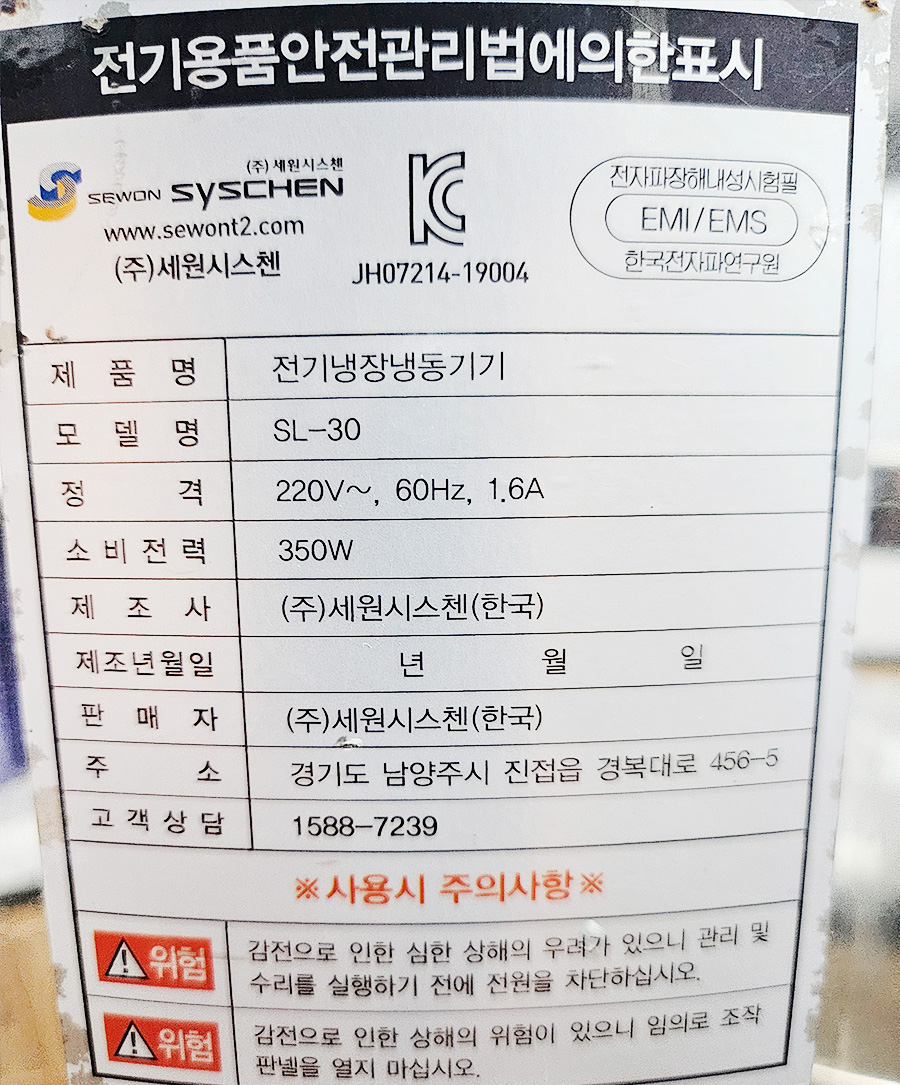 전기용품안전관리법에의한표시
(주) 세원시스첸
SEWON SYSCHEN
www.sewont2.com
(주)세원시스첸
KC
JH07214-19004
전자파장해내성시험필
EMI/EMS
한국전자파연구원
제 품 명 전기냉장냉동기기
모 델 명 SL-30
정 격 220V~, 60Hz, 1.6A
소 비 전 력 350W
제 조 사 (주)세원시스첸(한국)
제조년월일 년 월 일
판 매 자 (주)세원시스첸(한국)
주 소 경기도 남양주시 진접읍 경복대로 456-5
고 객 상 담 1588-7239
※사용시 주의사항※
위험 감전으로 인한 심한 상해의 우려가 있으니 관리 및
수리를 실행하기 전에 전원을 차단하십시오.
위험 감전으로 인한 상해의 위험이 있으니 임의로 조작
판넬을 열지 마십시오.